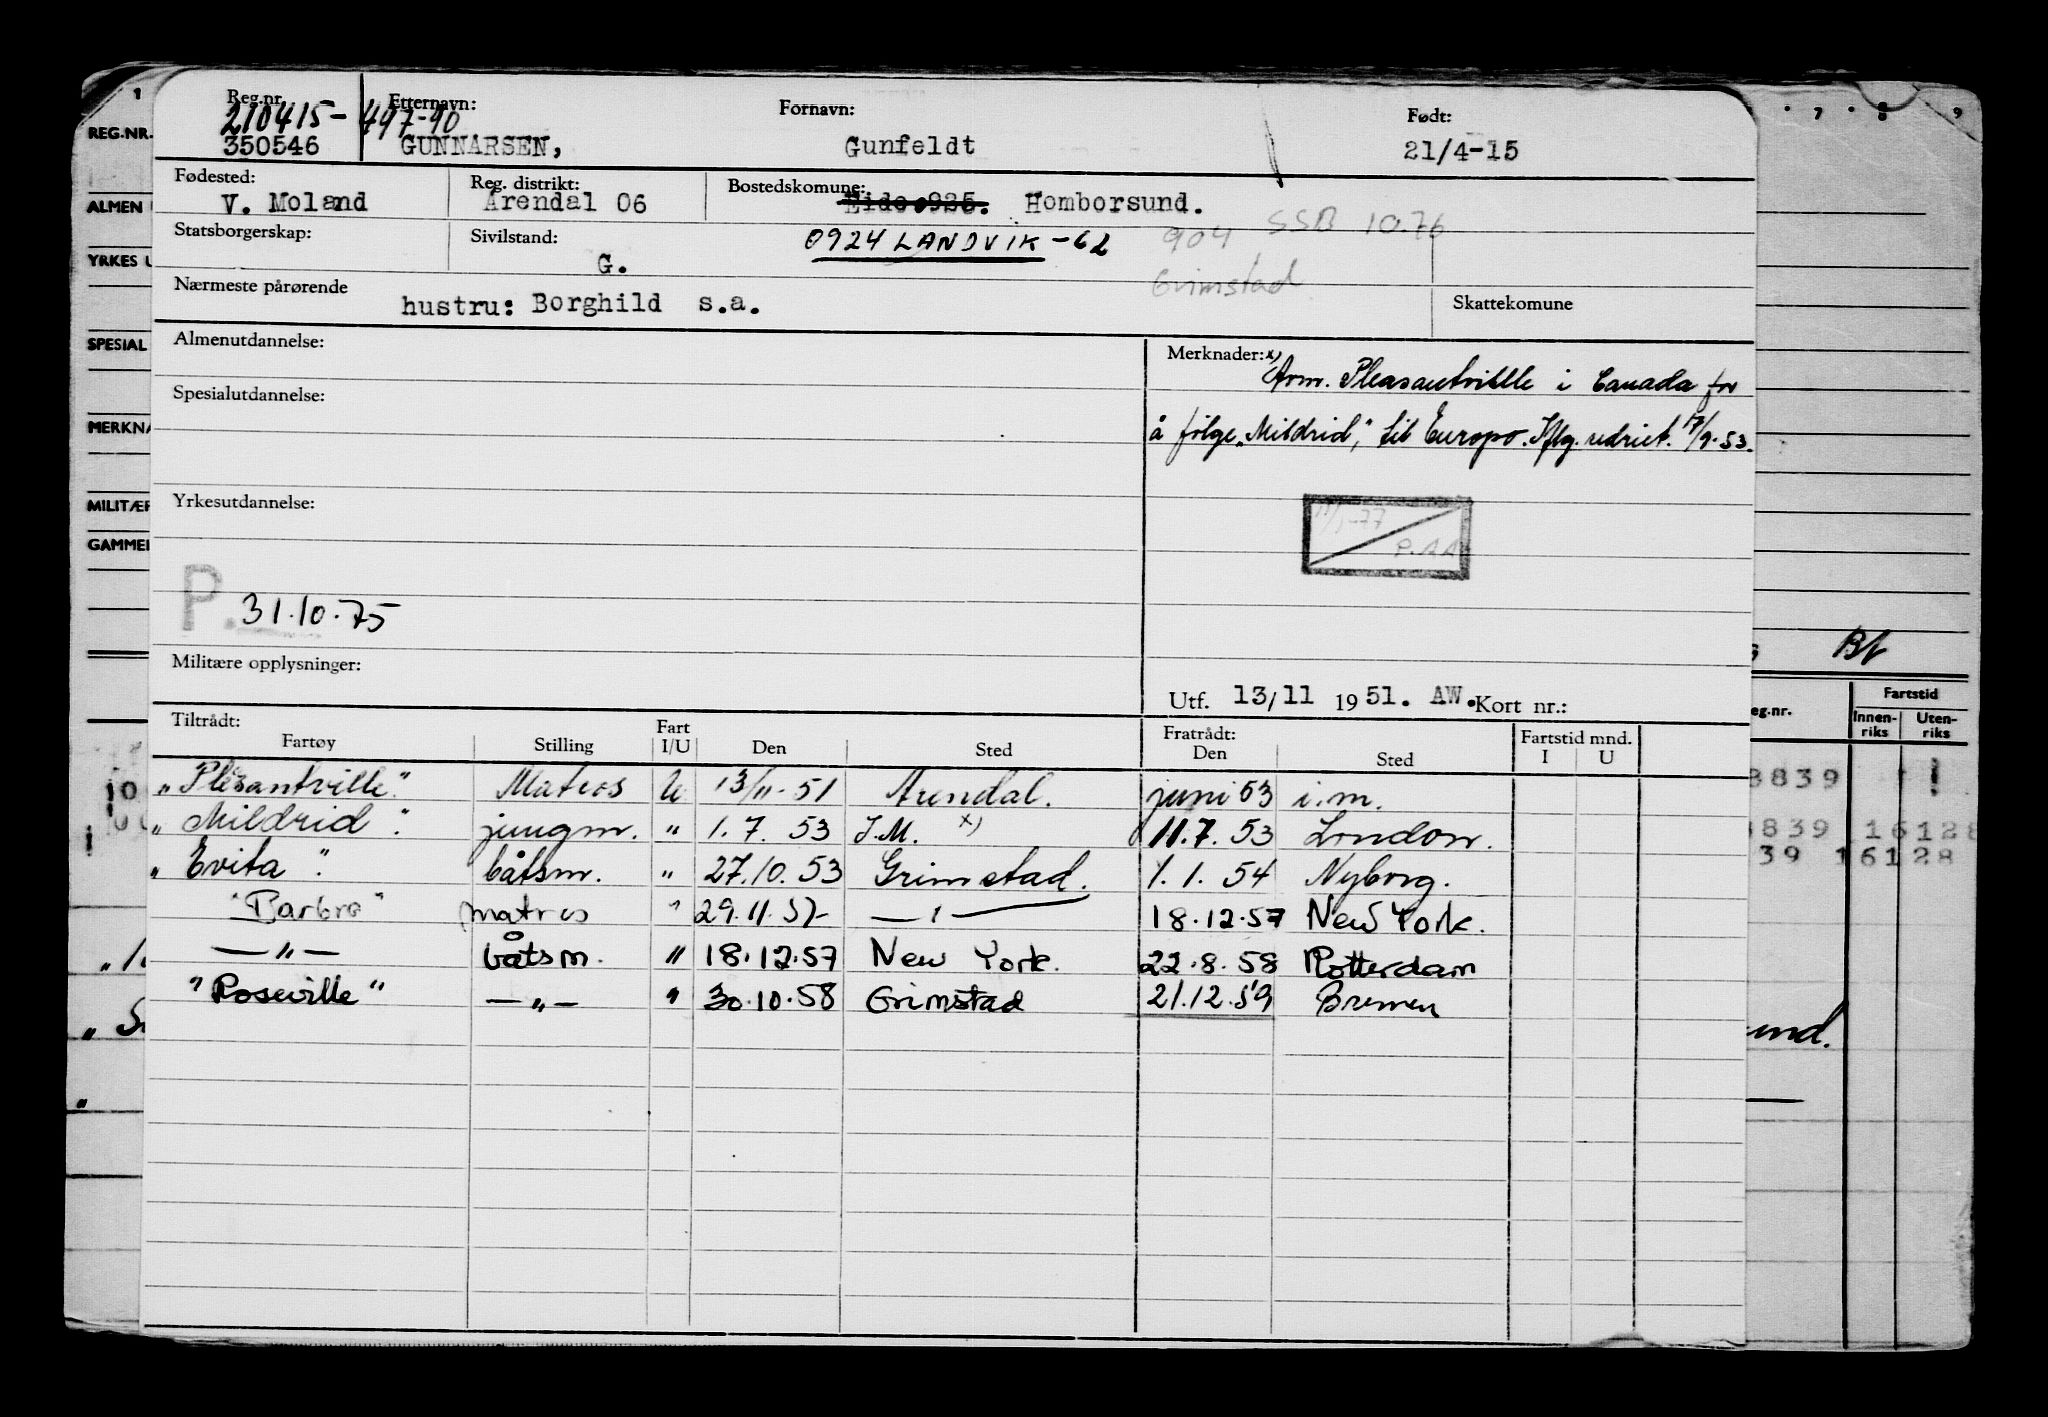 1 7 8 9
REG.NR.
Reg.nr. Etternavn: Fornavn: Født:
210415-497-90
350546 GUNNARSEN, Gunfeldt 21/4-15
Fødested: Reg. distrikt: Bostedskomune:
ALMEN
V. Moland Arendal 06 Eide 925. Homborsund.
Statsborgerskap: Sivilstand: 0924 LANDVIK -62 904 SSB 10.76
YRKES U
G.
Nærmeste pårørende Grimstad
hustru: Borghild s.a. Skattekomune
SPESIAL
Almenutdannelse: Merknader: x)
Avm. Pleasantville i Canada for
Spesialutdannelse:
MERKNA
å følge „Mildrid," til Europa. Iflg. udrikt. 17/9-53.
MILITÆR
Yrkesutdannelse:
GAMMEL
-77
P.
31.10.75
Bf
Militære opplysninger:
Utf. 13/11 1951. AW. Kort nr.:
eg.nr. Fartstid
Innen-riks Uten-riks
Tiltrådt: Fratrådt:
Fartøy Stilling Fart I/U Den Sted Den Sted Fartstid mnd. I U
„Plesantville". Matros U 13/11-51 Arendal. juni 53 i.m. 8839
„Mildrid". jungm. " 1.7. 53 I.M. x) 11.7. 53 London. 839 16128
„Evita". båtsm. " 27.10. 53 Grimstad. 1.1. 54 Nyborg. 39 16128
"Barbro" matros " 29.11.57 — " — 18.12.57 New York.
— " — båtsm. " 18.12.57 New York. 22.8.58 Rotterdam
"Roseville" — " — " 30.10.58 Grimstad 21.12.59 Bremen
und.